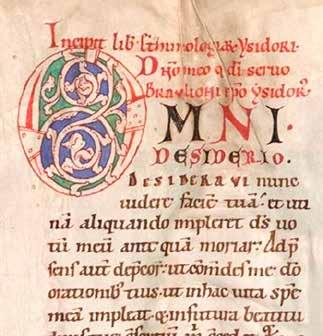 Incipit lib ethimologiaꝝ ysidori.
Dño meo & di seruo
Braulioni epo ysidor᷒
OMNI.
DESIDERIO.
DESIDERAVI nunc
uidere faciē tuā. et uti
nā aliquando impleret ds uo
tū meū ante quā moriar. Ad p̄
sens aut̄ deꝑcor. ut com̄des me dō
orationib; tuis. ut in hac uita spē
meā impleat. & in futura beatitu